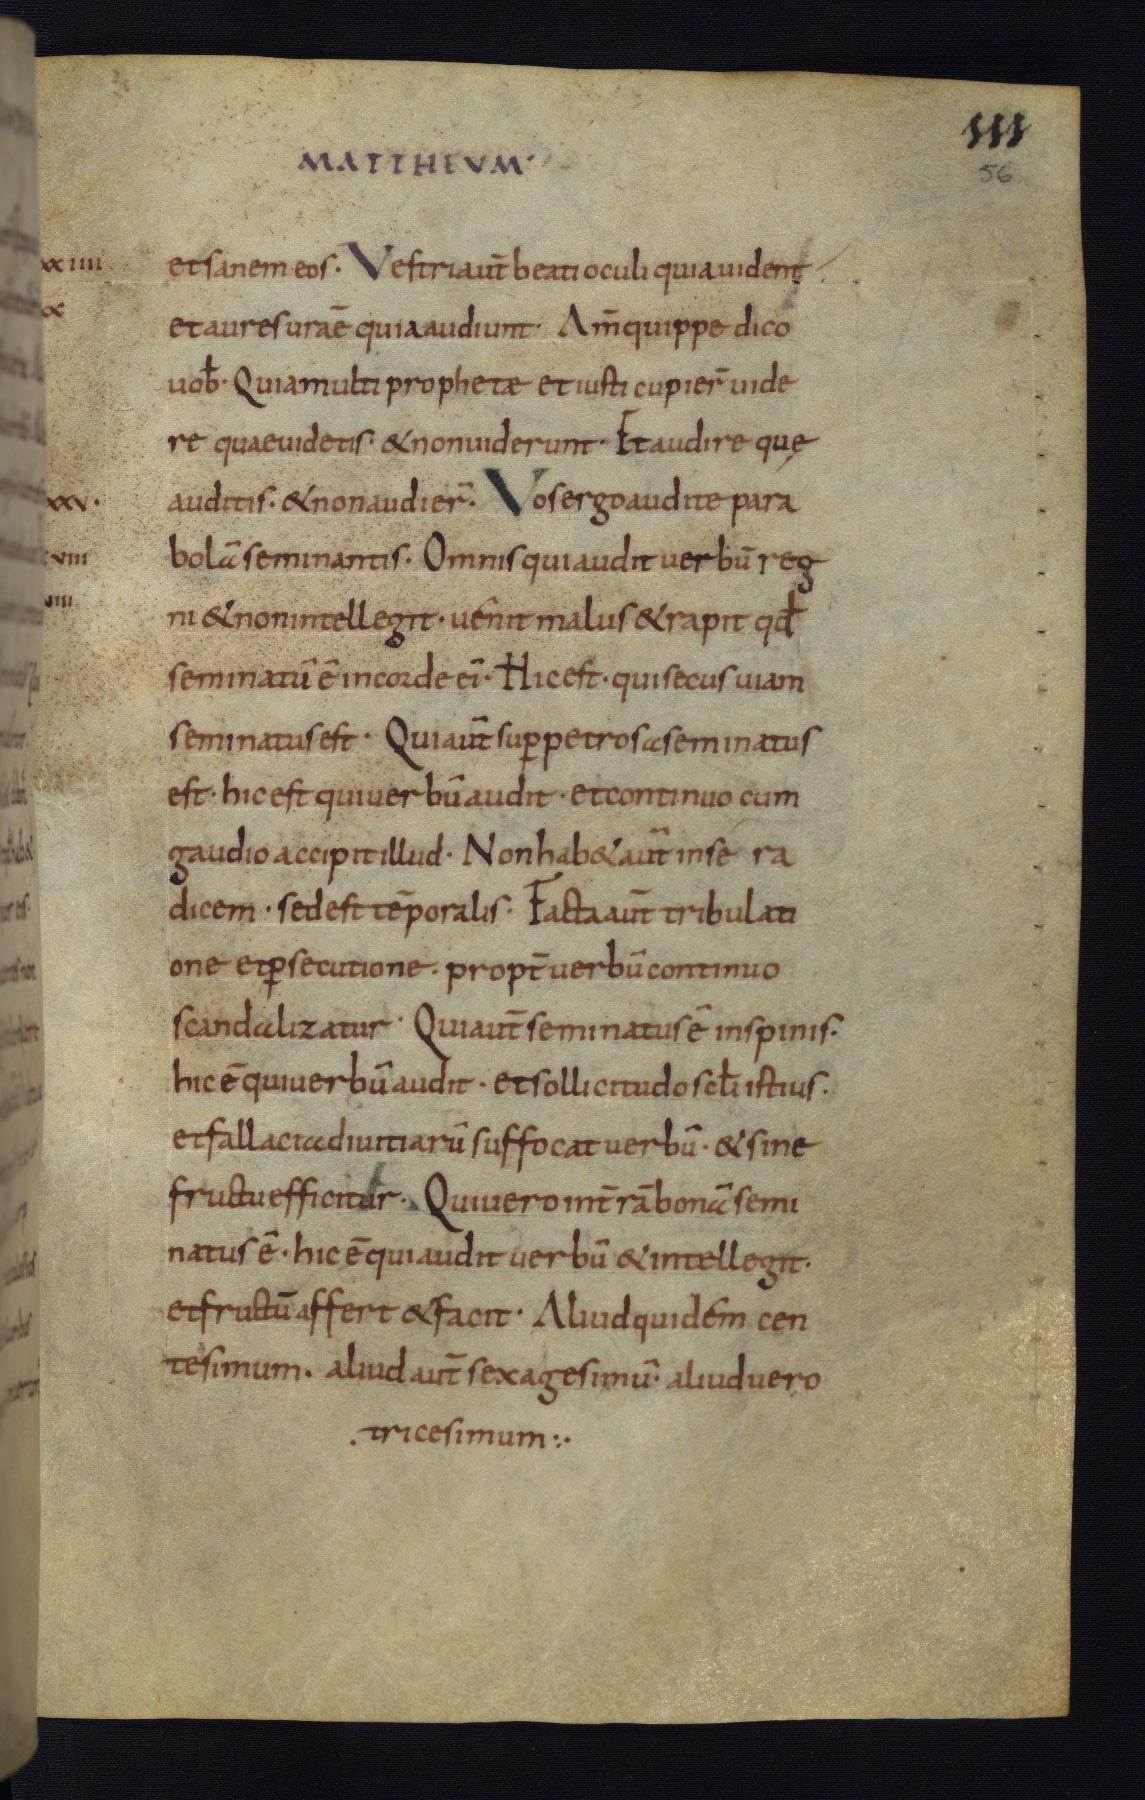 111
56
MATTHEVM·
xxiiii
et sanem eos. Vestri aut̄ beati oculi quia uident
x
et aures uraē᷎ quia audiunt· Am̄ quippe dico
uob̄· Quia multi prophetæ et iusti cupier̄ uide
re quae uidetis· & non uiderunt· Et audire quę
xxv·
auditis· & non audier̄· Vos ergo audite para
bolā seminantis· Omnis qui audit uerbū reg
viii
ni & non intellegit· uenit malus & rapit qd̄
seminatū ē in corde eī᷎· Hic est· qui secus uiam
seminatus est· Qui aut̄ sup̱ petrosa seminatus
est· hic est qui uerbū audit· et continuo cum
gaudio accipit illud· Non hab& aut̄ in se ra
dicem· sed est tēporalis· Facta aut̄ tribulati
one et p̱secutione· propt̄ uerbū continuo
scandalizatur· Qui aut̄ seminatus ē in spinis·
hic ē qui uerbū audit· et sollicitudo scl̄i istius·
et fallacia diuitiarū suffocat uerbū· & sine
fructu efficitur· Qui uero in t̄rā bonā semi
natus ē· hic ē qui audit uerbū & intellegit·
et fructū affert & facit· Aliud quidem cen
tesimum· aliud aut̄ sexagesimū· aliud uero
·tricesimum:·